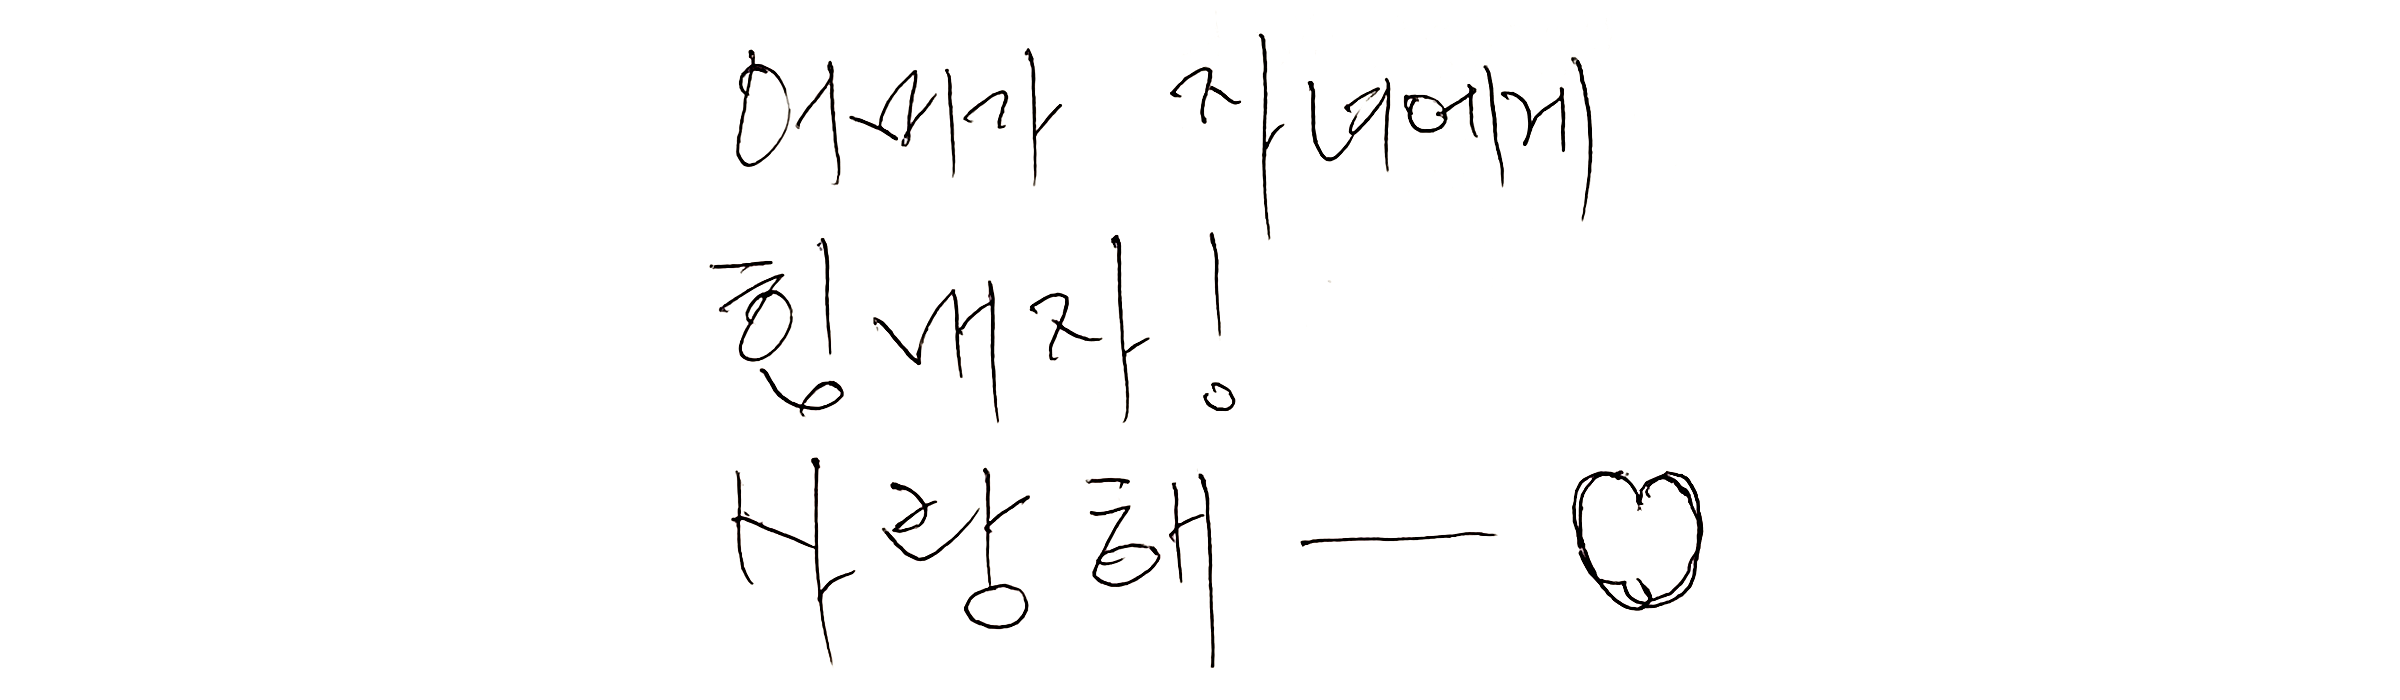 어머가 자녀에게
힘내자!
사랑해 ― ♡